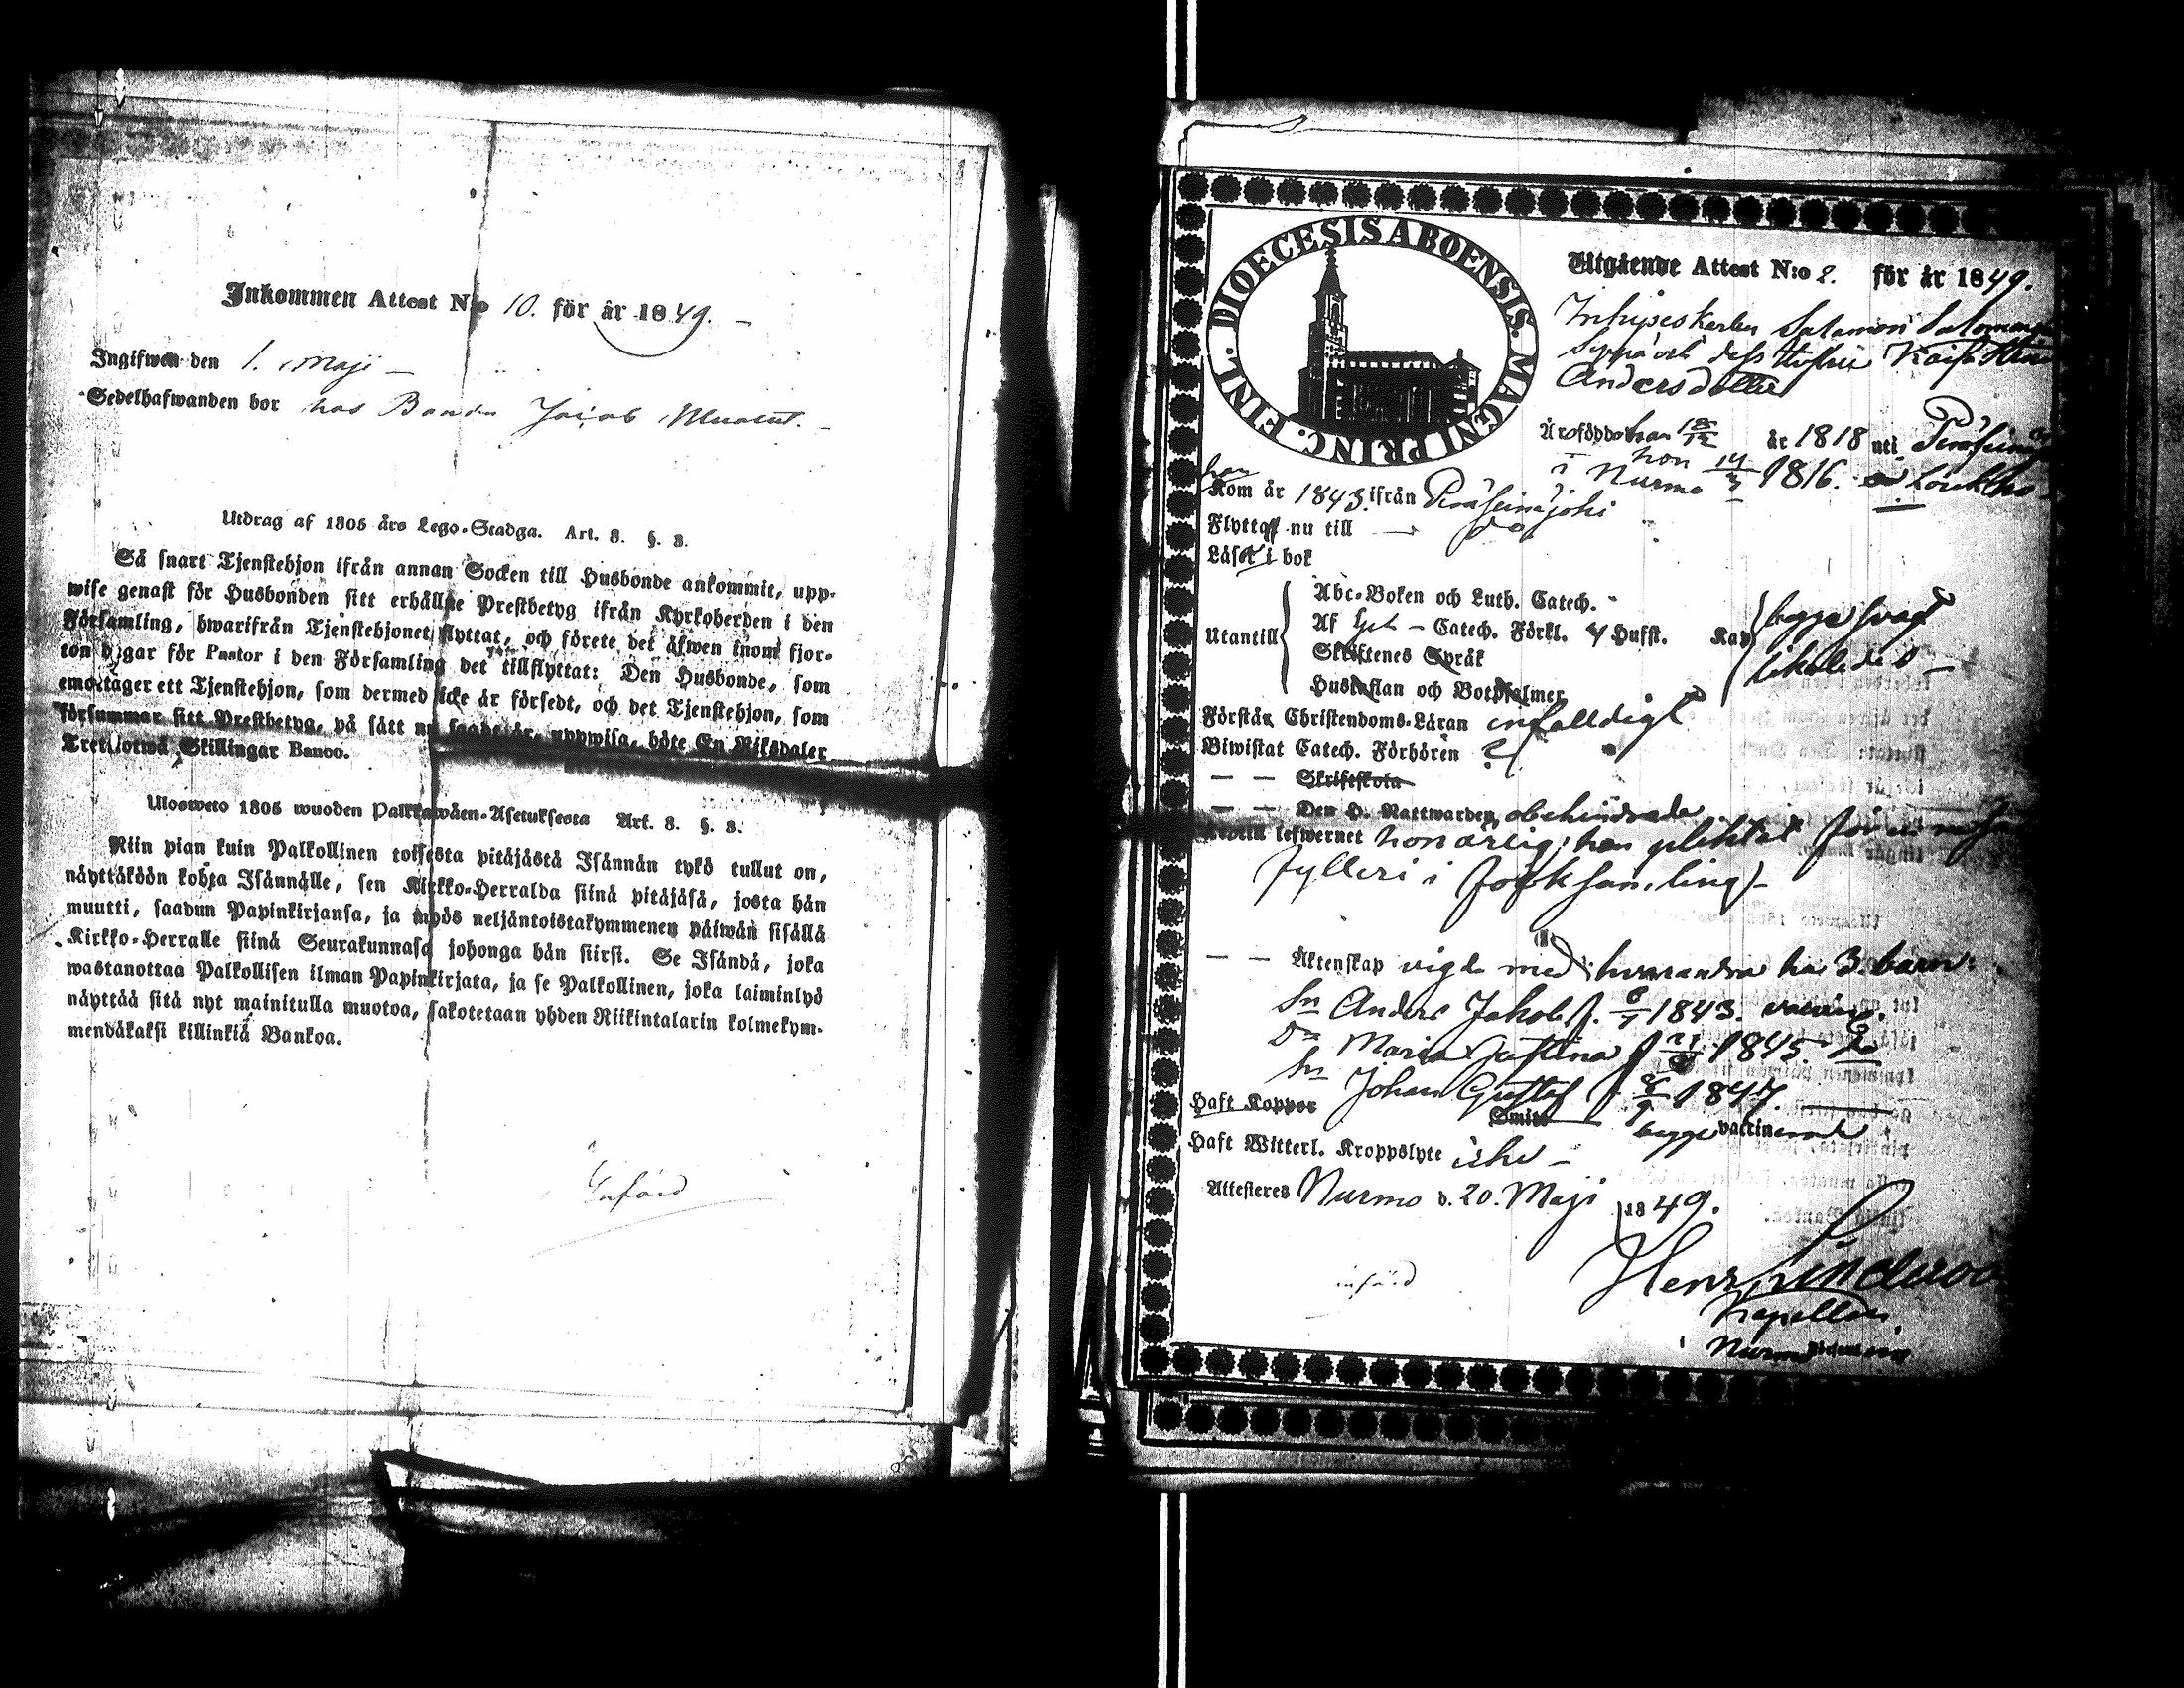 Inkommen Attest N:o 10. för år 1849.
Ingifwen den 1. Maji
Sedelhafwanden bor hos Bonden Jacob
Utdrag af 1805 års Lego-Stadga. Art. 8. §. 3.
Så snart Tjenstehjon ifrån annan Socken till Husbonde ankommit, upp-
wise genast för Husbonden sitt erhållne Prestbetyg ifrån Kyrkoherden i den
Församling, hwarifrån Tjenstehjonet flyttat, och förete det äfwen inom fjor-
ton dagar för Pastor i den Församling det tillflyttat: Den Husbonde, som
emottager ett Tjenstehjon, som dermed icke är försedt, och det Tjenstehjon, som
försummar sitt Prestbetyg, på sätt nu sagdt är, uppwisa, böte En Riksdaler
Trettiotwå Skillingar Banco.
Ulosweto 1805 wuoden Palkkawäen-Asetuksesta Art. 8. §. 3.
Niin pian kuin Palkollinen toisesta pitäjästä Isännän tykö tullut on,
näyttäköön kohta Isännälle, sen Kirkko-Herralda siinä pitäjäsä, josta hän
muutti, saadun Papinkirjansa, ja myös neljäntoistakymmenen päiwän sisällä
Kirkko-Herralle siinä Seurakunnasa johonga hän siirsi. Se Isändä, joka
wastanottaa Palkollisen ilman Papinkirjata, ja se Palkollinen, joka laiminlyö
näyttää sitä nyt mainitulla muotoa, sakotetaan yhden Riikintalarin kolmekym-
mendäkaksi killinkiä Bankoa.
Införd
DIOECESIS ABOENSIS. MAGNI PRINC. FINL.
Utgående Attest N:o 2. för år 1849.
Salamon
och dess Hustru Kaisa
Andersdotter
Är född han år 1818 uti
hon
i Nurmo 1816.
Kom år 1843. ifrån Peräseinäjoki
Flyttar nu till do
Läser i bok
Utantill
Abc-Boken och Luth. Catech.
Af Catech. Förkl. Husft. Kan
Skriftenes Språk
Hustaflan och Botpsalmer
begge svagt
Förstår Christendoms-Läran enfalldigt
Biwistat Catech. Förhören
— — Skriftskola
— — Den H. Nattwarden, obehindrade
lefwernet hon ärlig; han pliktat för
fylleri i folksamling
— — Äktenskap vigde med hvarandra ha 3. barn:
Sn Anders Jakob f. 1843. vaccin.
Dr Maria Justina f 1845. do
Sn Johan Gustaf f. 1847.
Haft Koppor
Smitt begge vaccinerade
Haft Witterl. Kroppslyte icke
Attesteres Nurmo d. 20. Maji 1849.
införd
Henr.
Kapellan
i Nurmo